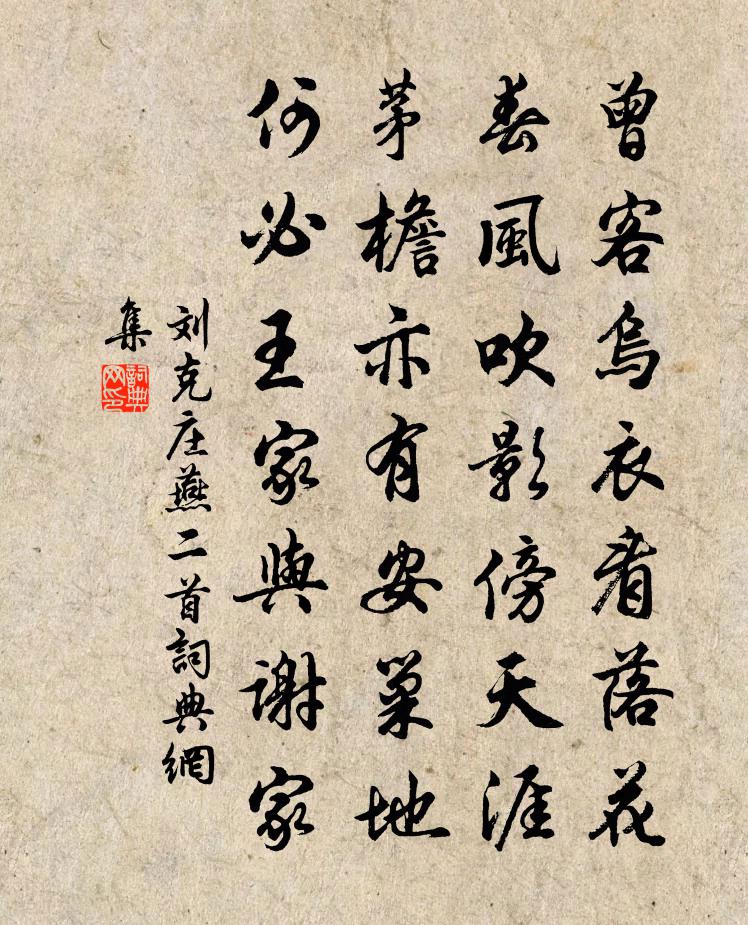 曾客烏衣看落花
春風吹影傍天涯
茅檐亦有安巢地
何必王家與謝家
刘克庄燕二首詞典網
集
詞典
网印